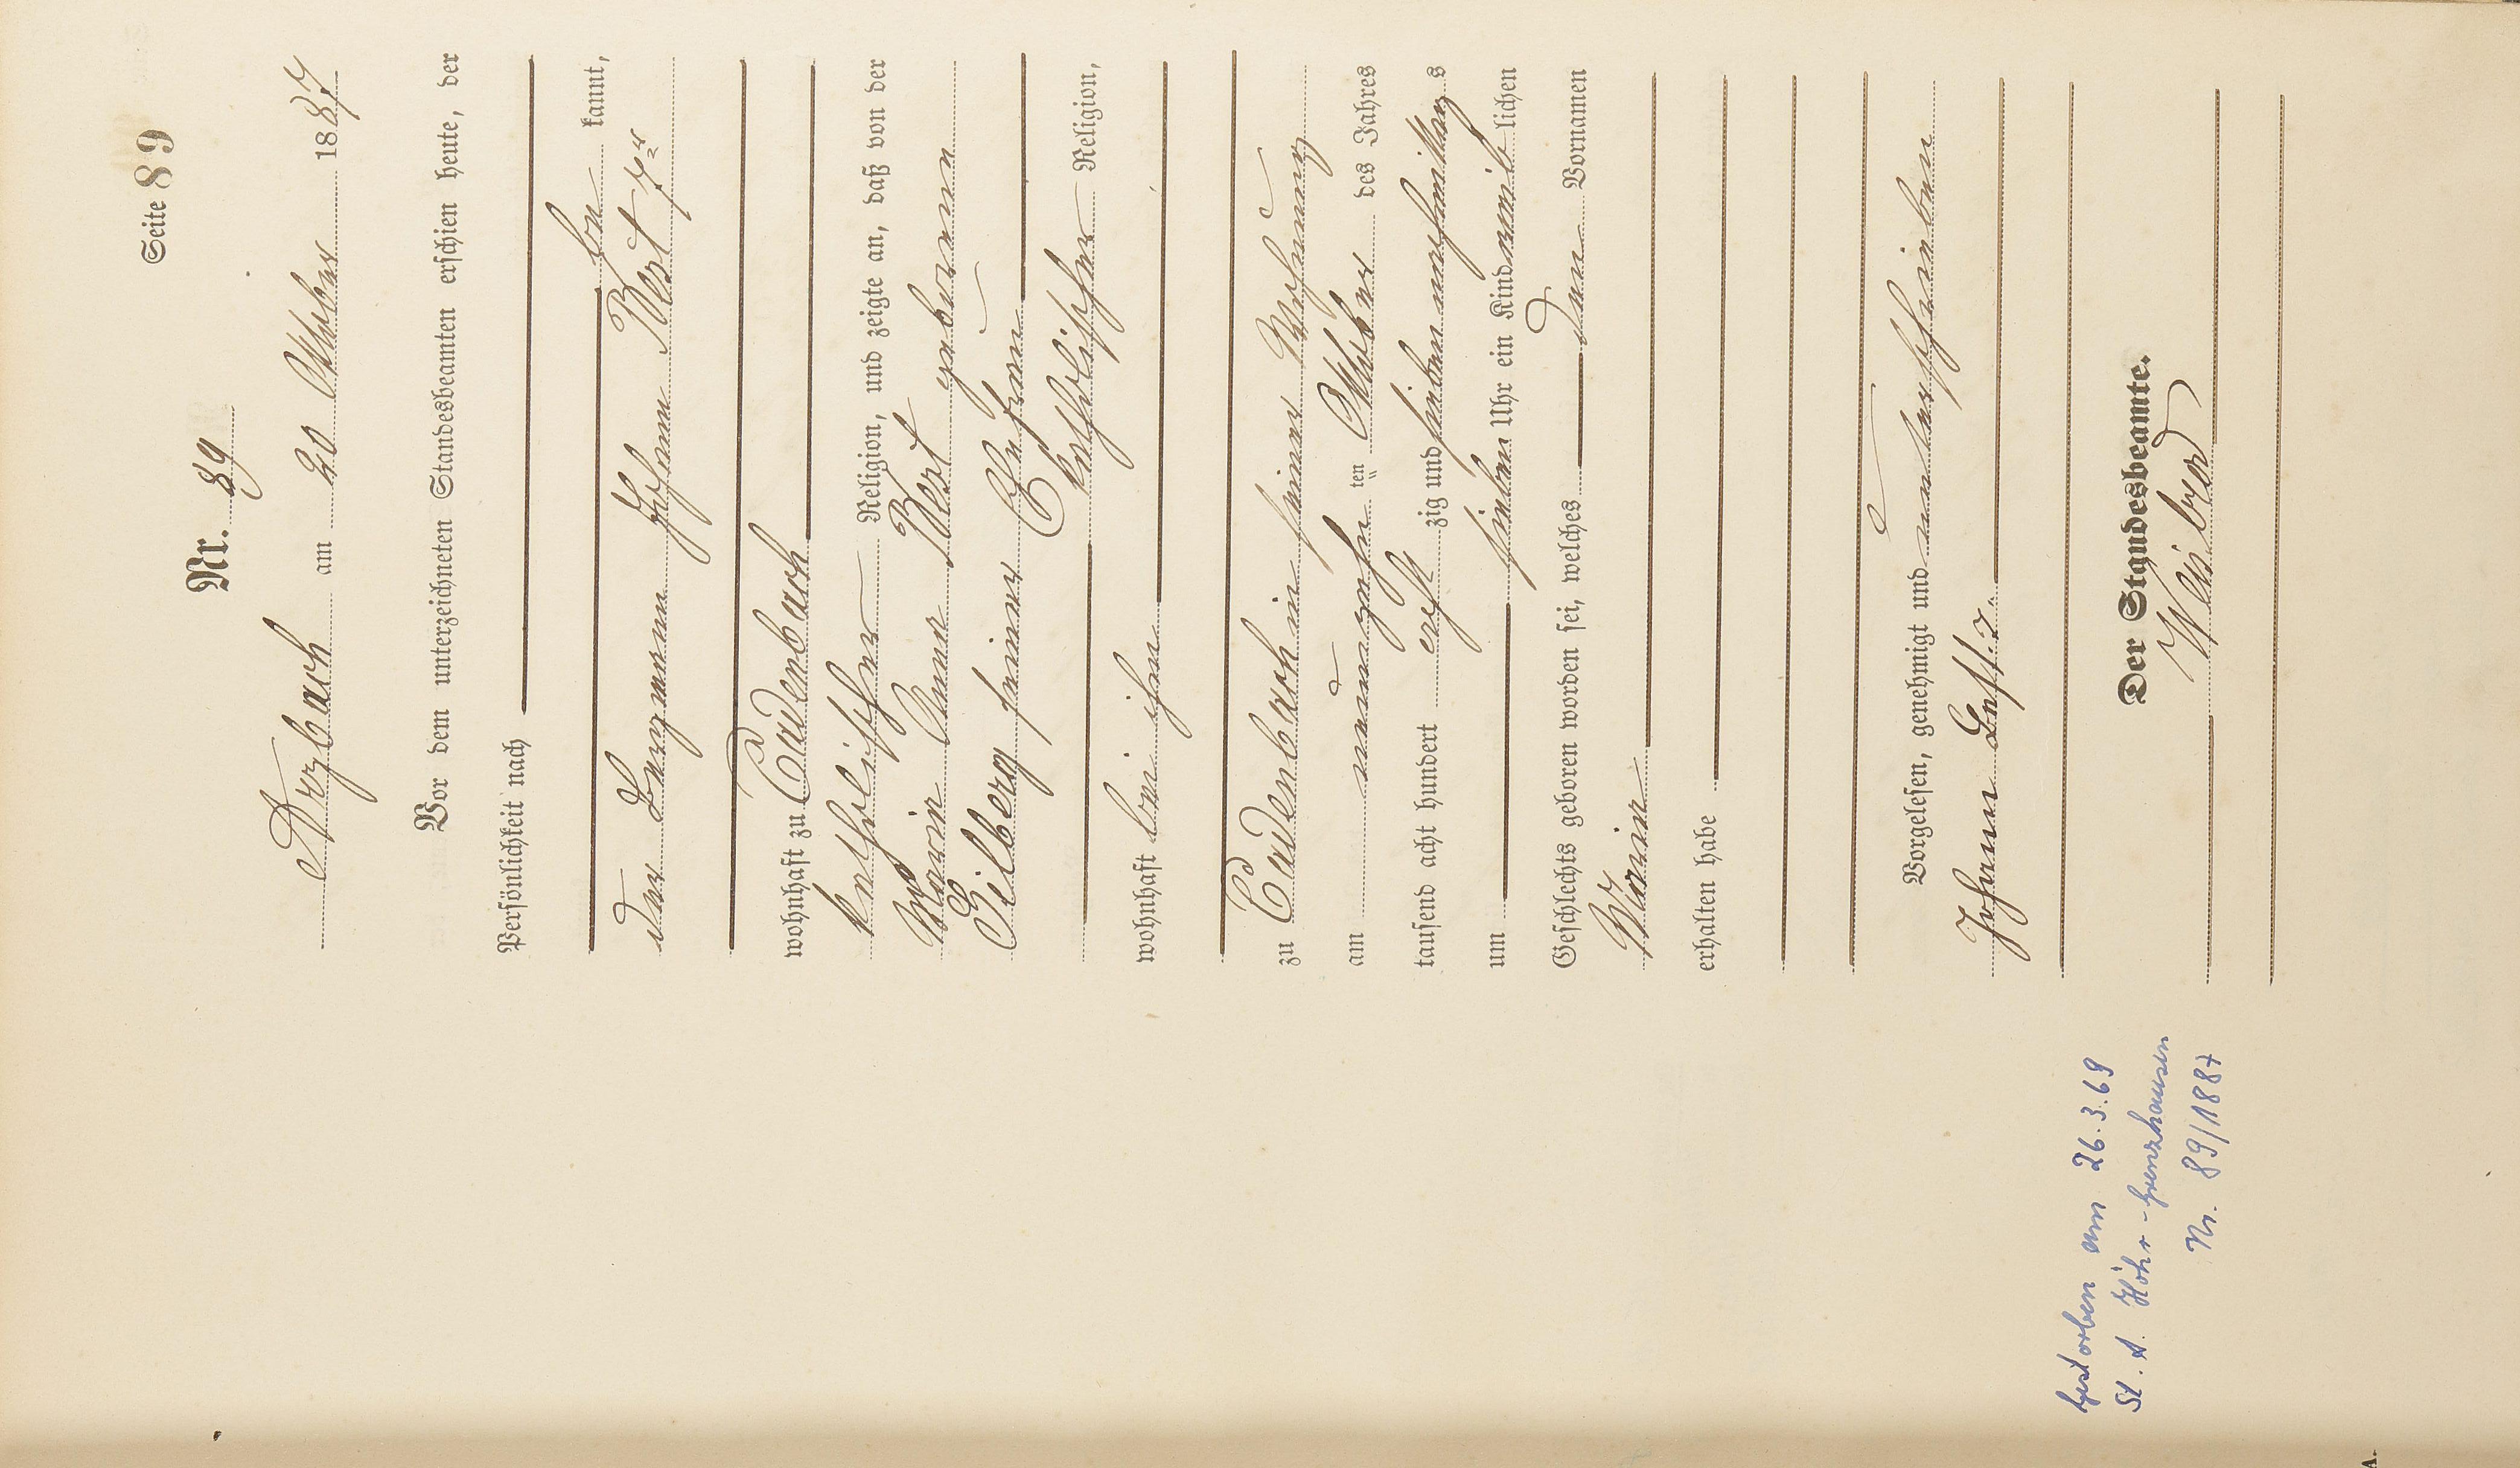 Seite 89
Nr. 89
Arzbach am 20 Oktober 1887
Vor dem unterzeichneten Standesbeamten erschien heute, der
Persönlichkeit nach
be kannt,
der Bergmann Johann
wohnhaft zu Cadenbach
katholischer Religion, und zeigte an, daß von der
Maria Anna geborenen
Gilberg seiner Ehefrau
katholischer Religion,
wohnhaft bei ihm
zu Cadenbach in seiner Wohnung
am neunzehn ten Oktober des Jahres
tausend acht hundert acht zig und sieben nachmittags
um sieben Uhr ein Kind weib lichen
Geschlechts geboren worden sei, welches den Vornamen
Maria
erhalten habe
Vorgelesen, genehmigt und unterschrieben
Johann
Der Standesbeamte.
gestorben am 26.3.69
St. A. Höhr-Grenzhausen
Nr. 89/1887